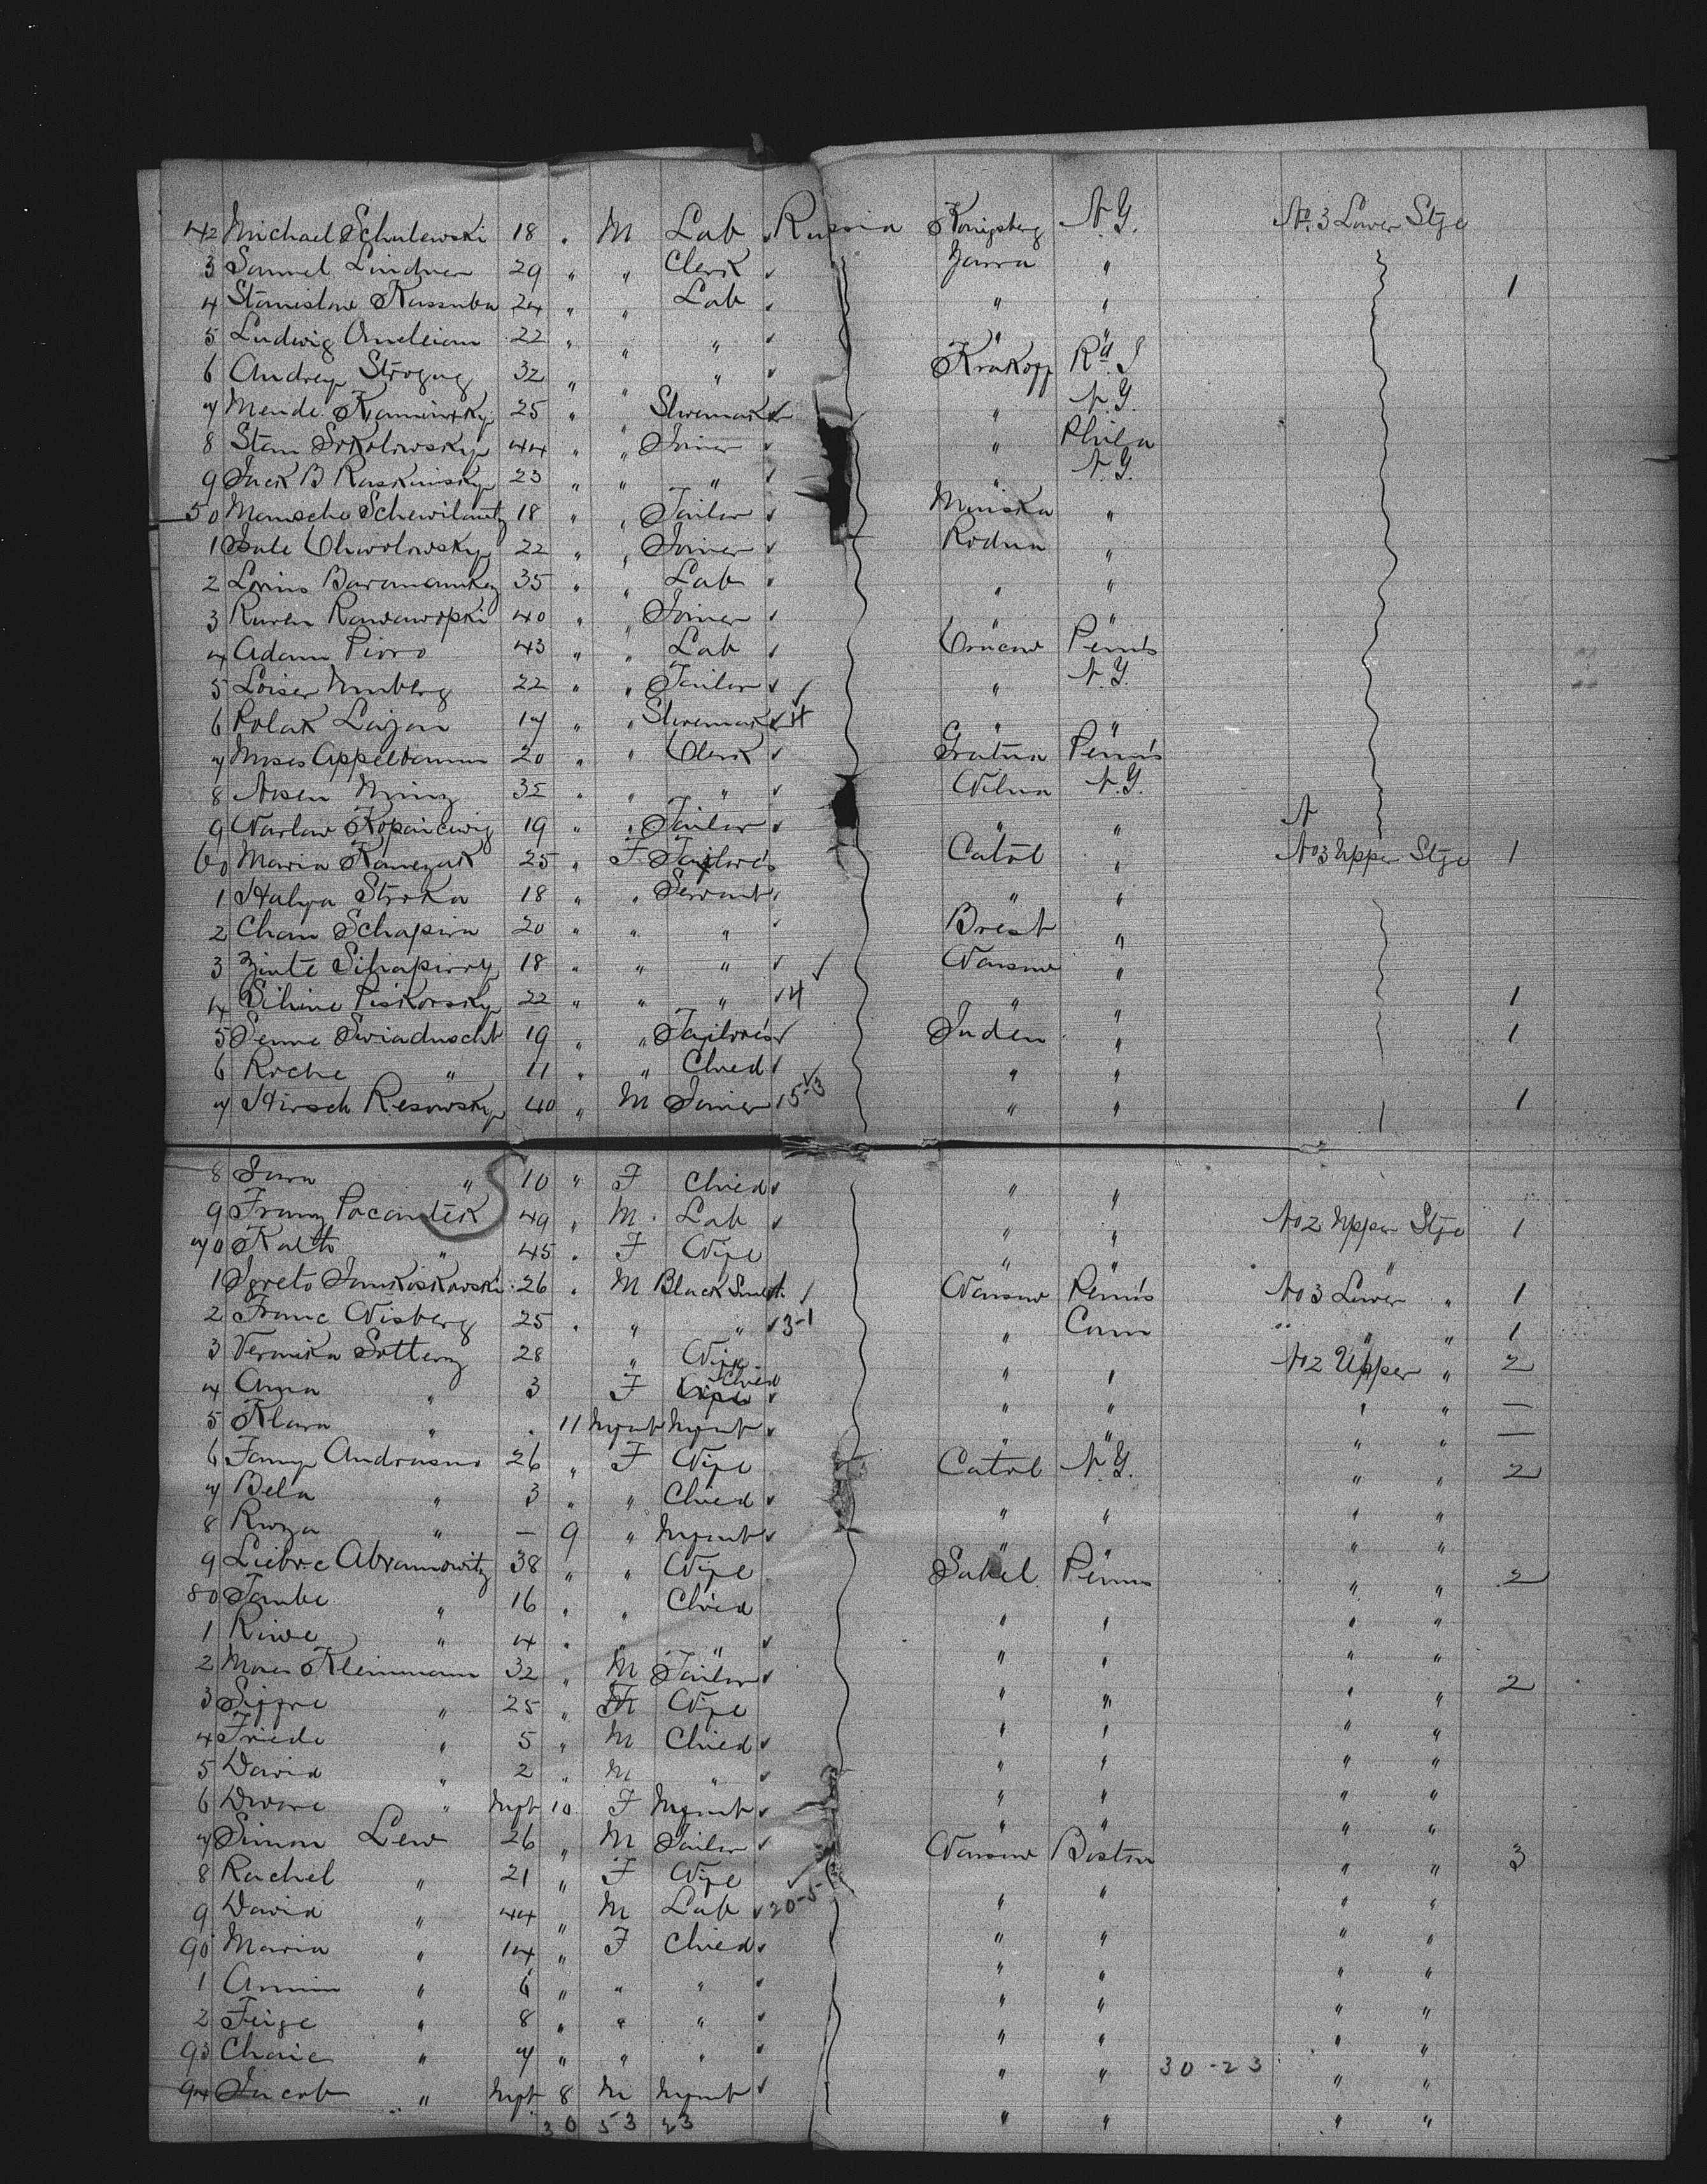 42 Michael Schulewski 18 " M Lab Russia Konigsberg N.Y. No. 3 Lower Stge
3 Samuel Lindner 29 " " Clerk Janra "
4 Stanislow Kassuba 24 " " Lab " " 1
5 Ludwig 22 " " " " "
6 Andrey 32 " " " Krakoff Rd. I
7 Mende Kaminsky 25 " " Shoemaker " N.Y.
8 Stam Sokolowsky 44 " " Joiner " Phila
9 Jack B Raskinsky 23 " " " " N.Y.
50 Mamsche 18 " " Tailor Minska "
1 Chwolowsky 22 " " Joiner Rodna "
2 35 " " Lab " "
3 Ruven 40 " " Joiner " "
4 Adam Pivro 43 " " Lab Penn's
5 Loiser Nunberg 22 " " Tailor " N.Y.
6 Polak Lajan 17 " " Shoemaker 4 " "
7 Moses Appelbaum 20 " " Clerk Penn's
8 Minz 35 " " " Wilna N.Y.
9 Warlaw 19 " " Tailor " " N
60 Maria 25 " F Tailore's Catol " No 3 Upper Stge 1
1 Halya Stroka 18 " " Servant " "
2 Chan Schapira 20 " " " Brest "
3 Zinte 18 " " " Warsaw "
4 Piskorsky 22 " " " 4 " " 1
5 Senne Swiaduscht 19 " " Tailore's Juden " 1
6 Roche " 11 " " Chied " "
7 Hirsch Resowsky 40 " M Joiner 5-3 " " 1
8 Sara " 10 " F Chied " "
9 Franz Pocantek 49 " M Lab " " No 2 Upper Stge 1
70 Kath " 45 " F Wife " " "
1 26 " M Black Smith Warsaw Penn's No 3 Lower " 1
2 Franc Wisberg 25 " " " 3-1 " Conn " " " 1
3 Veronika 28 " Wife " " No 2 Upper " 2
4 Anna " 3 F Chied " " " " —
5 Klara " . 11 Infant Infant " " " " —
6 Fany Andrasno 26 " F Wife Catol N.Y. " " 2
7 Bela " 3 " " Chied " " " "
8 Roza " — 9 " Infant " " " "
9 Liebre Abramowitz 38 " " Wife Sakel Penns " " 2
80 Taube " 16 " " Chied " " " "
1 Riwe " 4 " " " " " " "
2 Moses Kleinmann 32 " M Tailor " " " " 2
3 " 25 " F Wife " " " "
4 Friede " 5 " M Chied " " " "
5 David " 2 " M " " " " "
6 Dware " Inft 10 F Infant " " " "
7 Simon Lew 26 " M Tailor Warsaw Boston " " 3
8 Rachel " 21 " F Wife " " " "
9 David " 44 " M Lab 20-5 " " " "
90 Maria " 14 " F Chied " " " "
1 Annie " 6 " " " " " " "
2 Feige " 8 " " " " " " "
93 Chaie " 7 " " " " " 30-23 " "
94 Jacob " Inft 8 M Infant " " " "
30 53 23